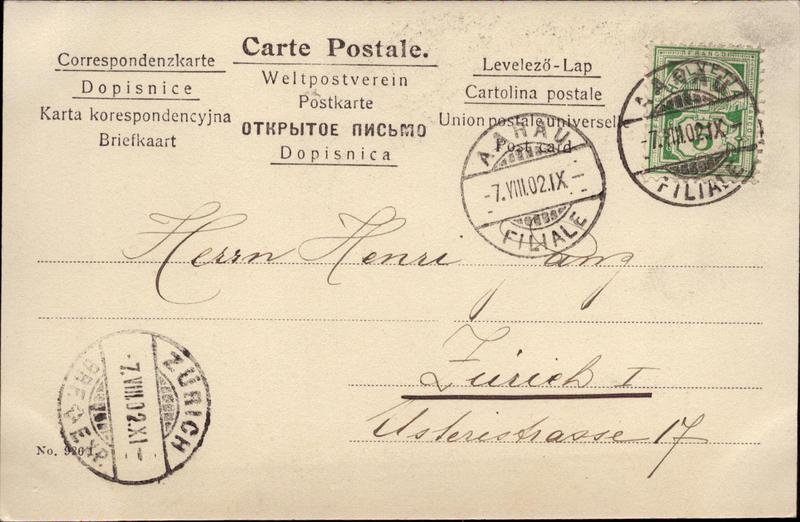 Carte Postale.
Correspondenzkarte
Dopisnice
Karta korespondencyjna
Briefkaart
Weltpostverein
Postkarte
ОТКРЫТОЕ ПИСЬМО
Dopisnica
Levelező-Lap
Cartolina postale
Union postale universelle
Post card
FRANCO
AARAU
-7.VIII.02.IX-
FILIALE
AARAU
-7.VIII.02.IX-
FILIALE
Herrn Henri
Zürich I
Usteristrasse 17
ZÜRICH
-7.VIII.02.XI-
BRF.
No. 9261